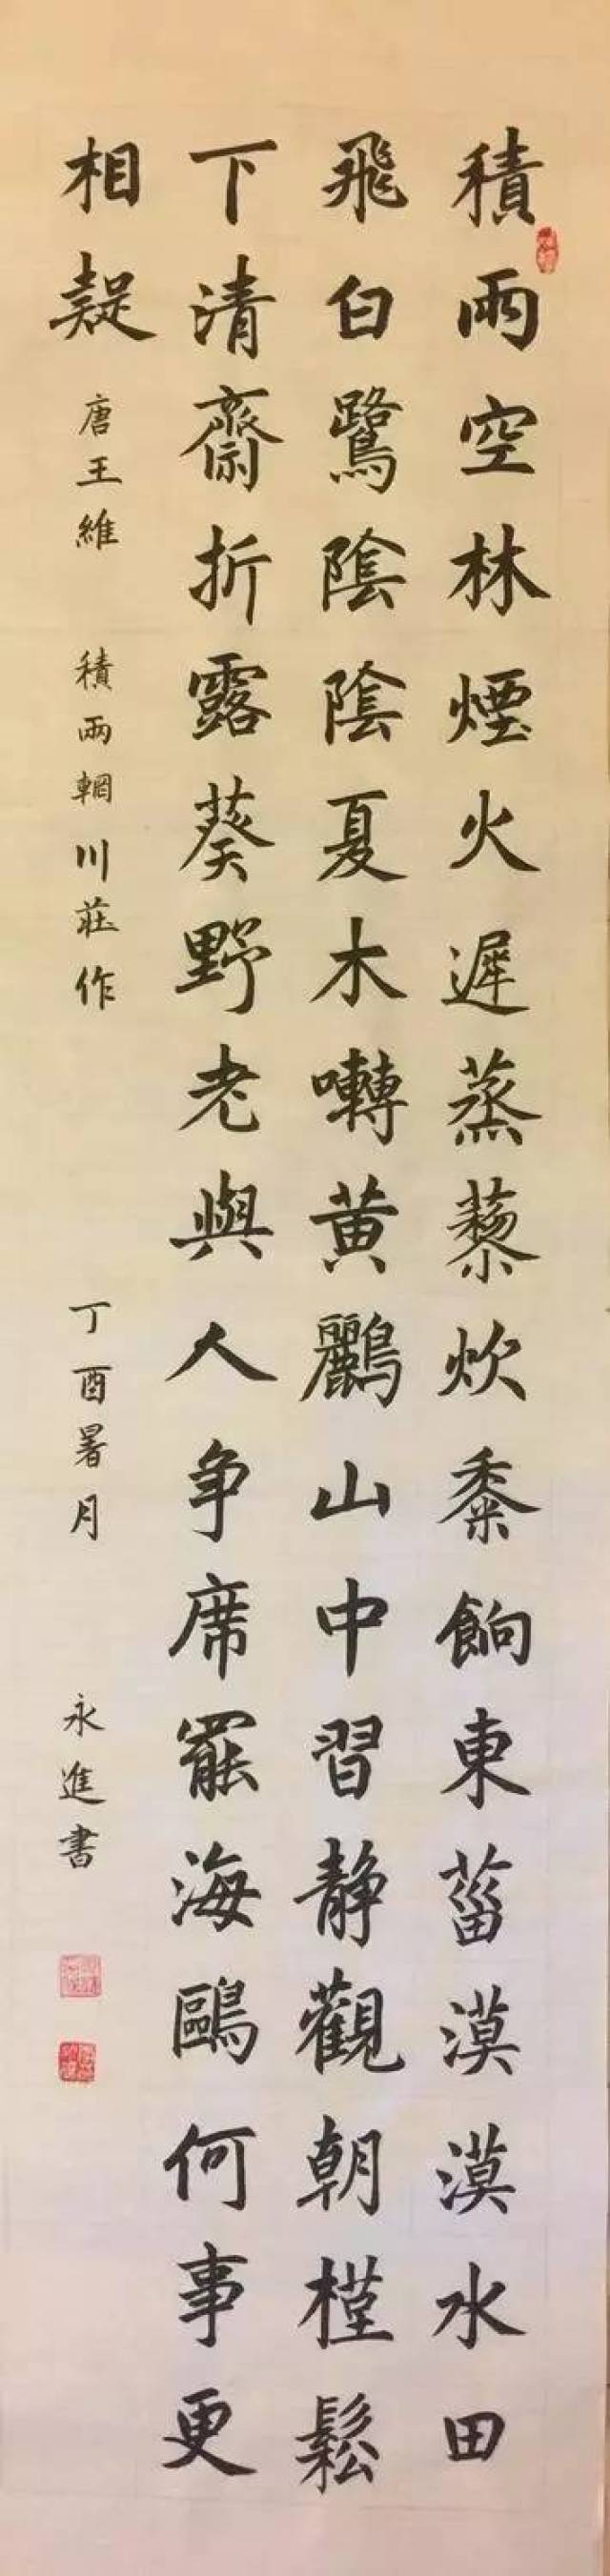 積雨空林煙火遲蒸藜炊黍餉東菑漠漠水田
飛白鷺陰陰夏木囀黄鸝山中習静觀朝槿鬆
下清齋折露葵野老與人争席罷海鷗何事更
相疑
唐王維 積雨輞川莊作 丁酉暑月 永進書